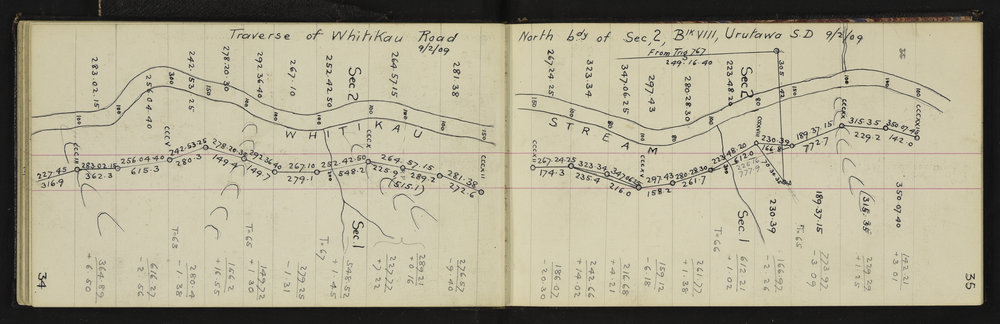 Traverse of Whitikau Road
9/2/09
North bdy of Sec, 2, Blk VIII, Urutawa S.D 9/2/09
From Trig 767
249·16·40
283·02·15
256·04·40
300
242·53·25
278·20·30
292·36·40
267·10
252·42·50
Sec 2
264·57·15
281·38
267·24·25
323·34
347·06·25
297·43
280·28·30
223·48·20
Sec 2
WHITIKAU
STREAM
227·45
316·9
283·02·15
362·3
256·04·40
615·3
242·53·25
280·3
278·20·30
149·4
292·36·40
149·7
267·10
279·1
252·42·50
548·2
264·57·15
225·9
289·2
(515·1)
281·38
272·6
267·24·25
174·3
323·34
235·4
347·06·25
216·0
297·43
158·2
280·28·30
261·7
223·48·20
612·0
230·39
166·8
189·37·15
772·7
315·35
229·2
350·07·40
142·0
Sec 1
Sec 1
230·39
189·37·15
(315·35
350·07·40
34
364·89
+ 6·50
616·27
- 2·56
T=63
280·4
- 1·38
156·2
+ 16·55
T=65
149·72
+ 1·30
279·25
- 1·31
T=67
548·52
+ 1·45
227·72
+ 7·22
289·21
+ 0·16
276·57
- 9·40
186·07
- 2·30
242·66
+ 14·02
216·68
+ 4·21
159·12
- 6·18
261·77
+ 1·38
T=66
612·21
+ 1·02
166·97
- 2·26
T=65
773·97
- 3·09
229·29
+ 1·25
142·21
+ 3·01
35